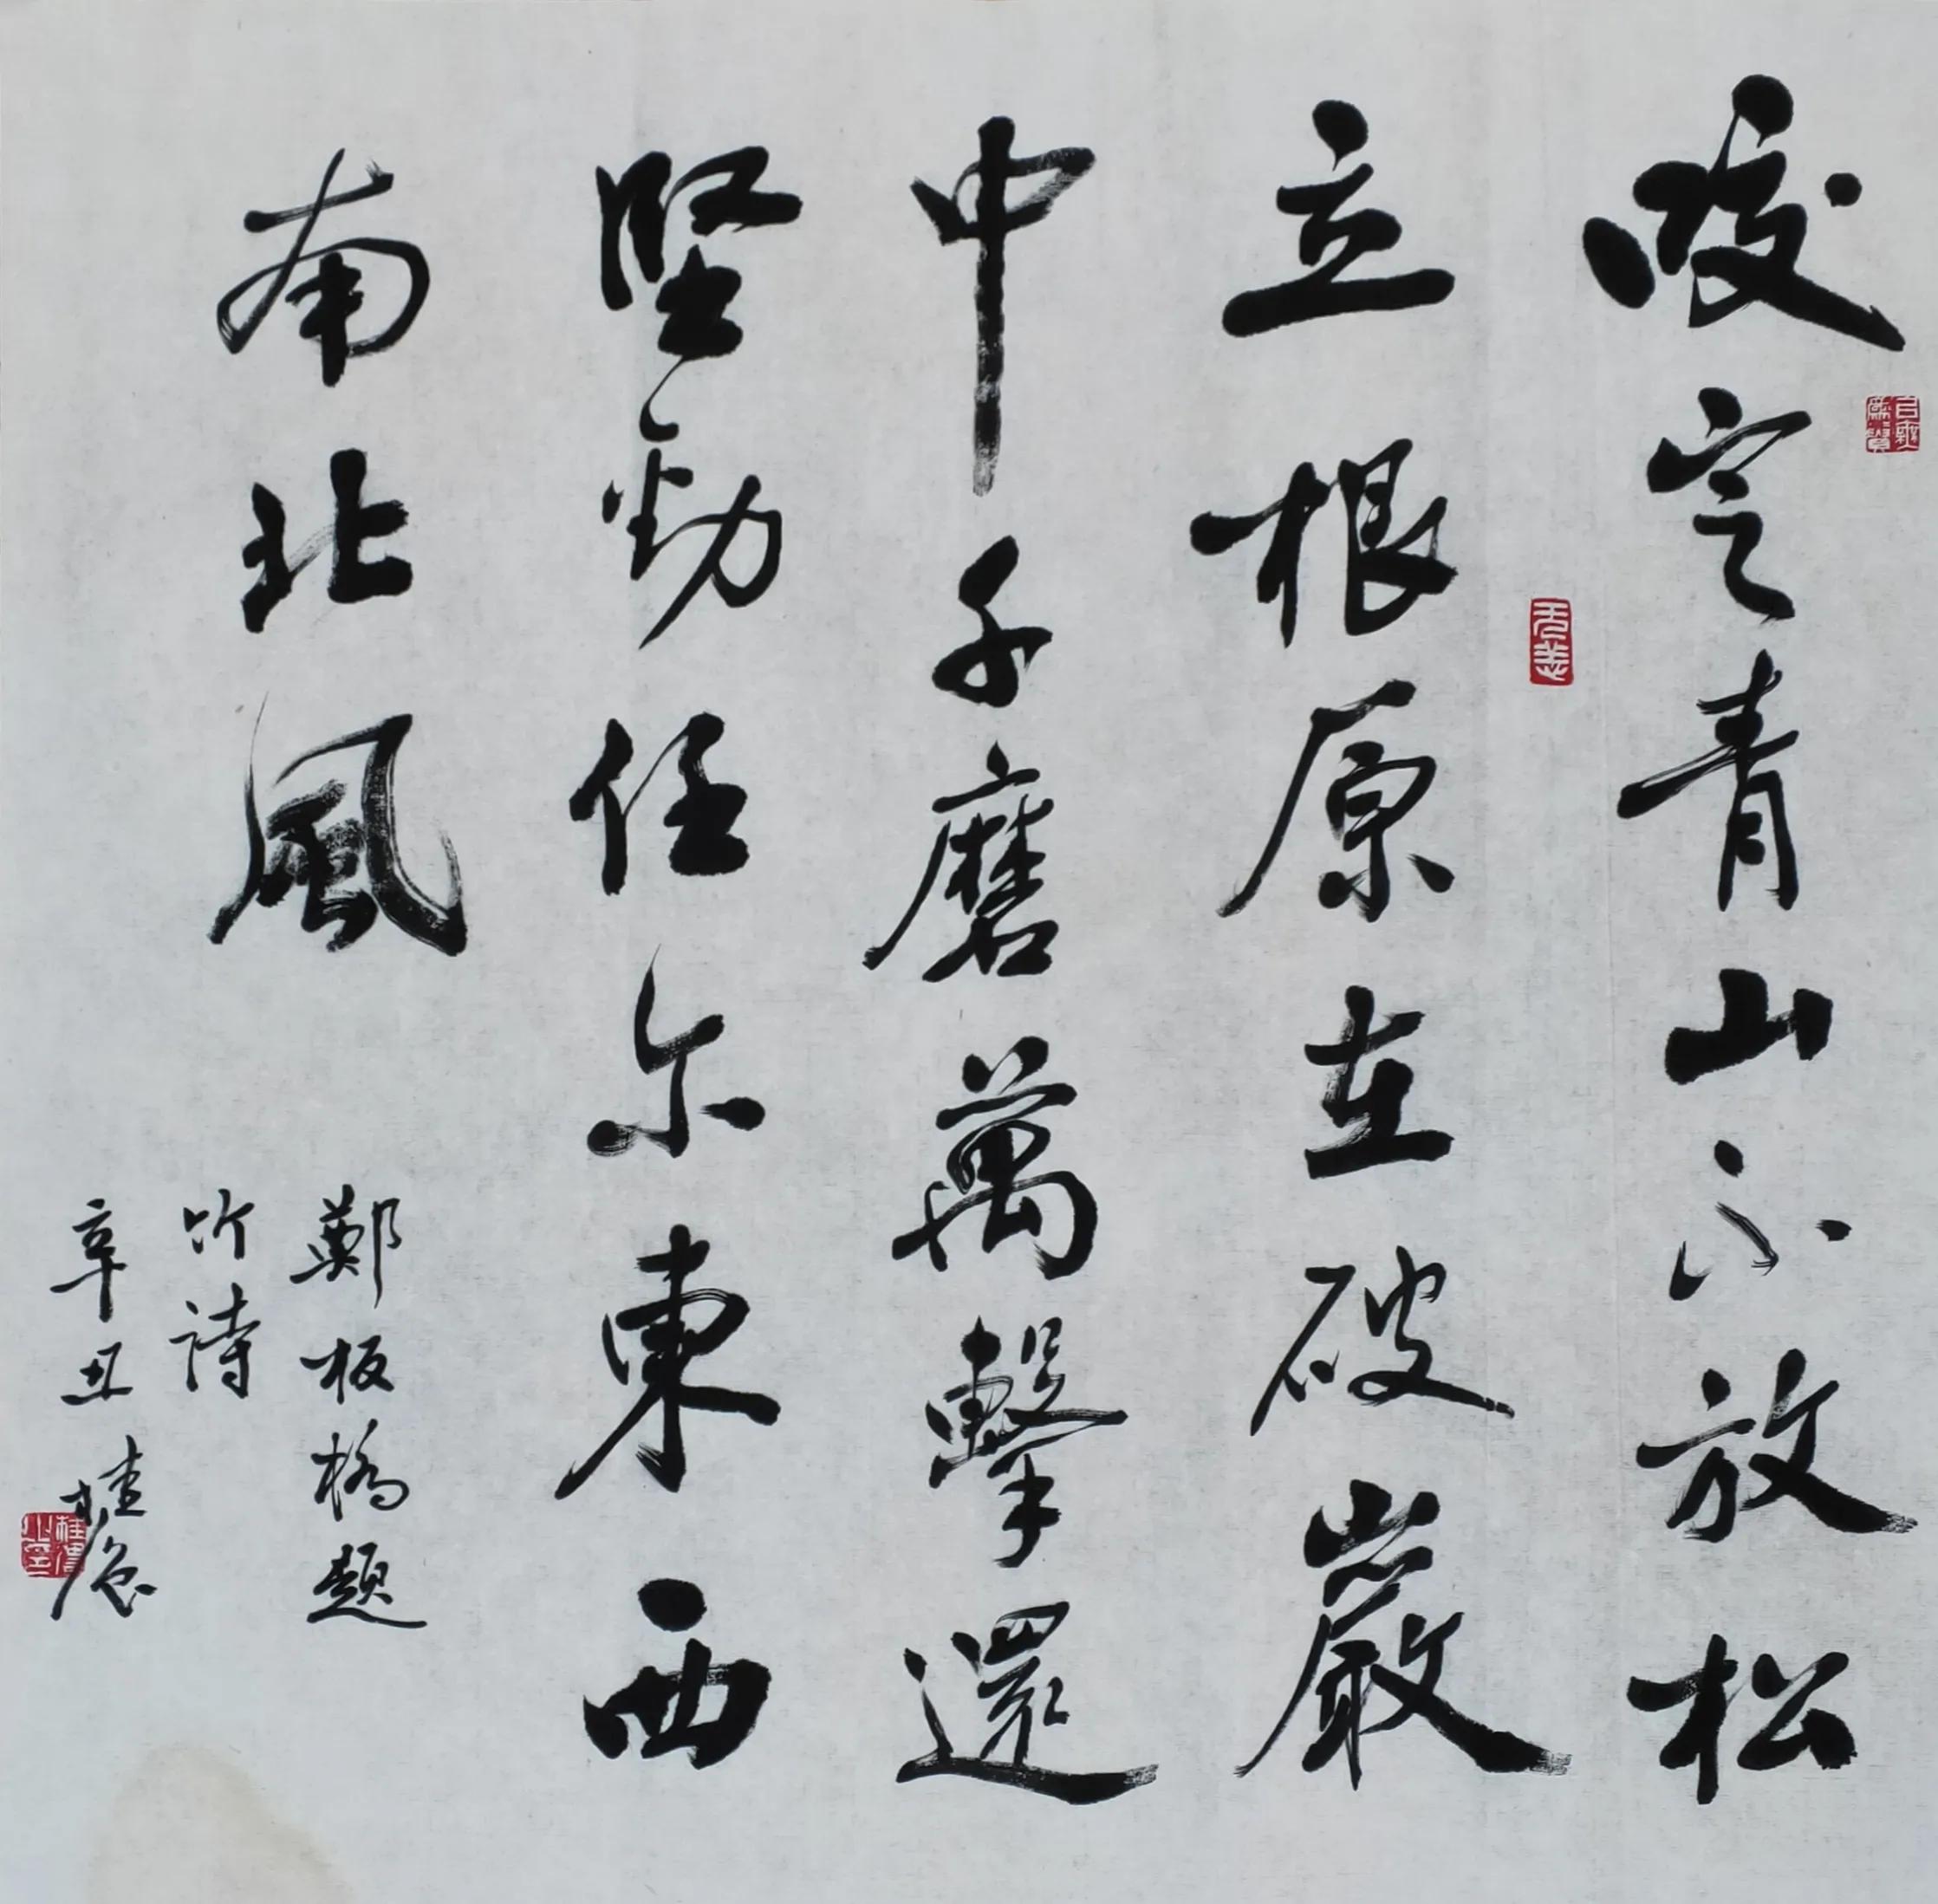 咬定青山不放松
立根原在破巖
中千磨萬擊還
堅勁任尔東西
南北風
鄭板橋題
竹詩
辛丑桂